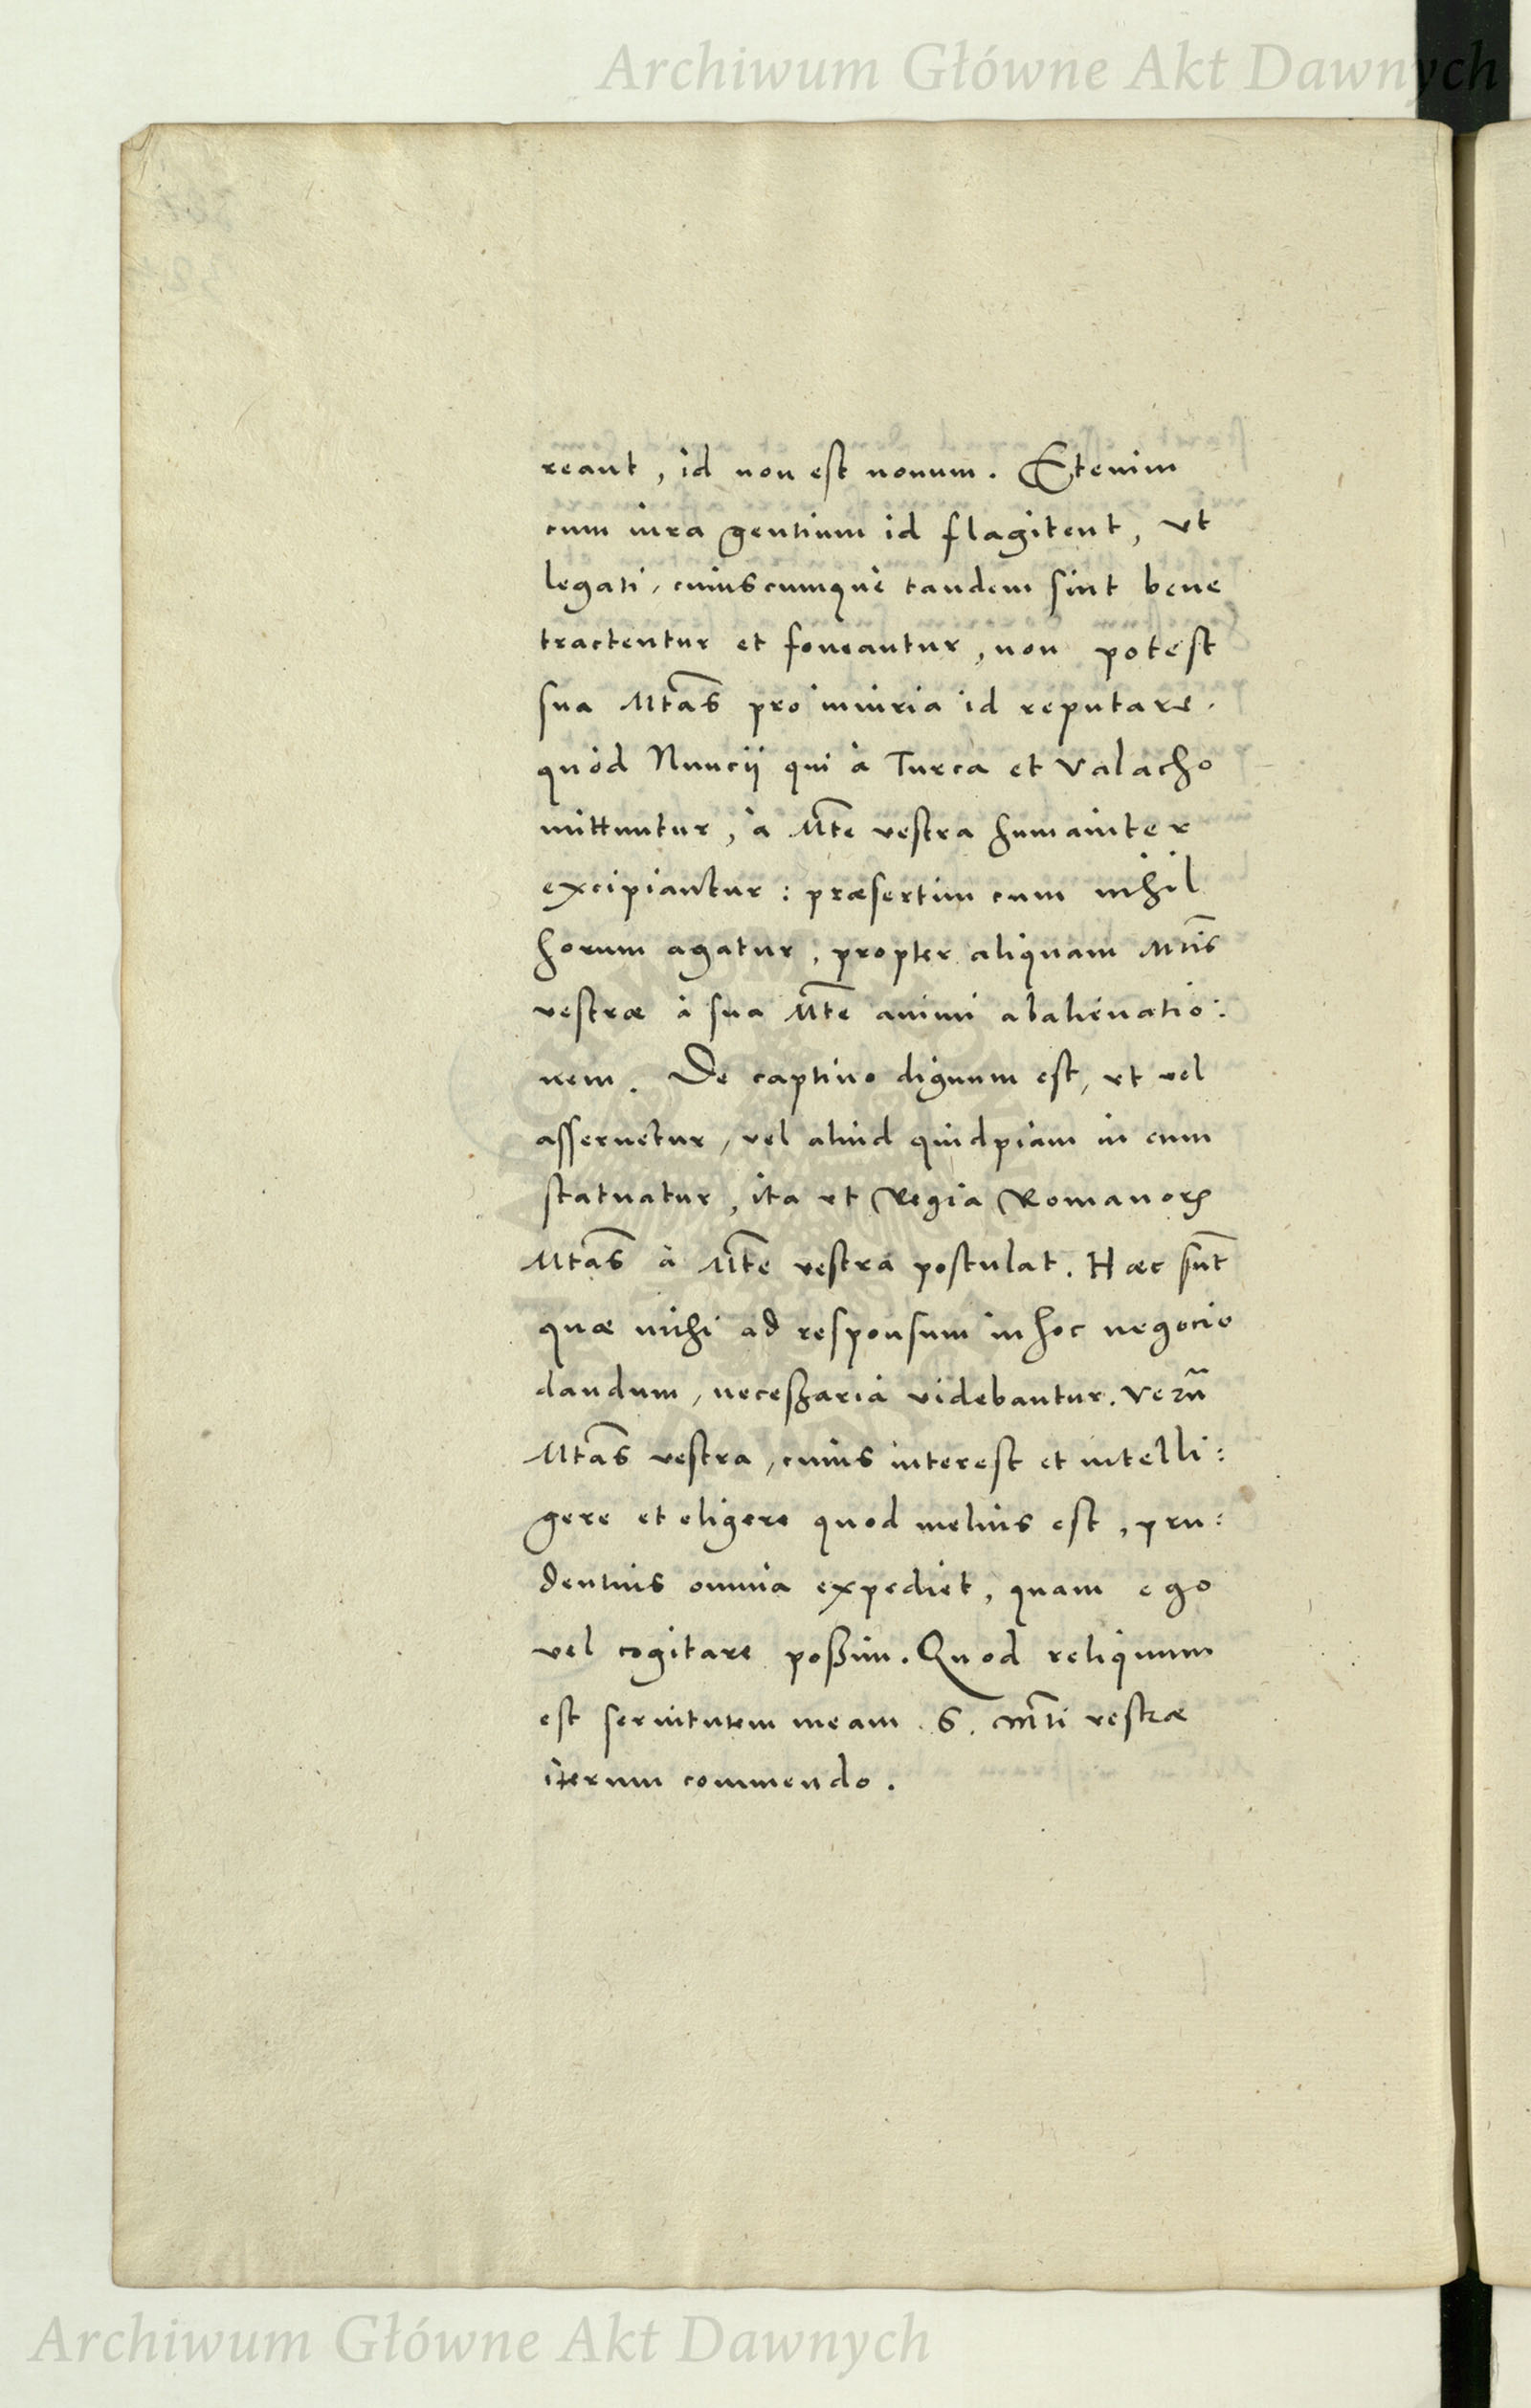 Archiwum Główne Akt Dawnych
reant, id non est nouum. Etenim
cum iura gentium id flagitent, vt
legati, cuiuscumque tandem sint bene
tractentur et foueantur, non potest
sua Mtas̄ pro iniuria id reputare.
quòd Nuncij qui à Turca et Valacho
mittuntur, à Mt̄e vestra humaniter
excipiantur: præsertim cum nihil
horum agatur, propter aliquam Mtis̄
vestræ à sua Mt̄e animi abalienatio:
nem. De captiuo dignum est, vt vel
asseruetur, vel aliud quidpiam in eum
statuatur, ita vt Regia Romanorꝝ
Mtas̄ à Mt̄e vestra postulat. Hæc sūt
quæ mihi ad responsum in hoc negocio
dandum, necessaria videbantur. Verū
Mtas̄ vestra, cuius interest et intelli:
gere et eligere quod melius est, pru:
dentius omnia expediet, quam ego
vel cogitare possim. Quod reliquum
est seruitutem meam S. Mt̄i vestræ
iterum commendo.
Archiwum Główne Akt Dawnych